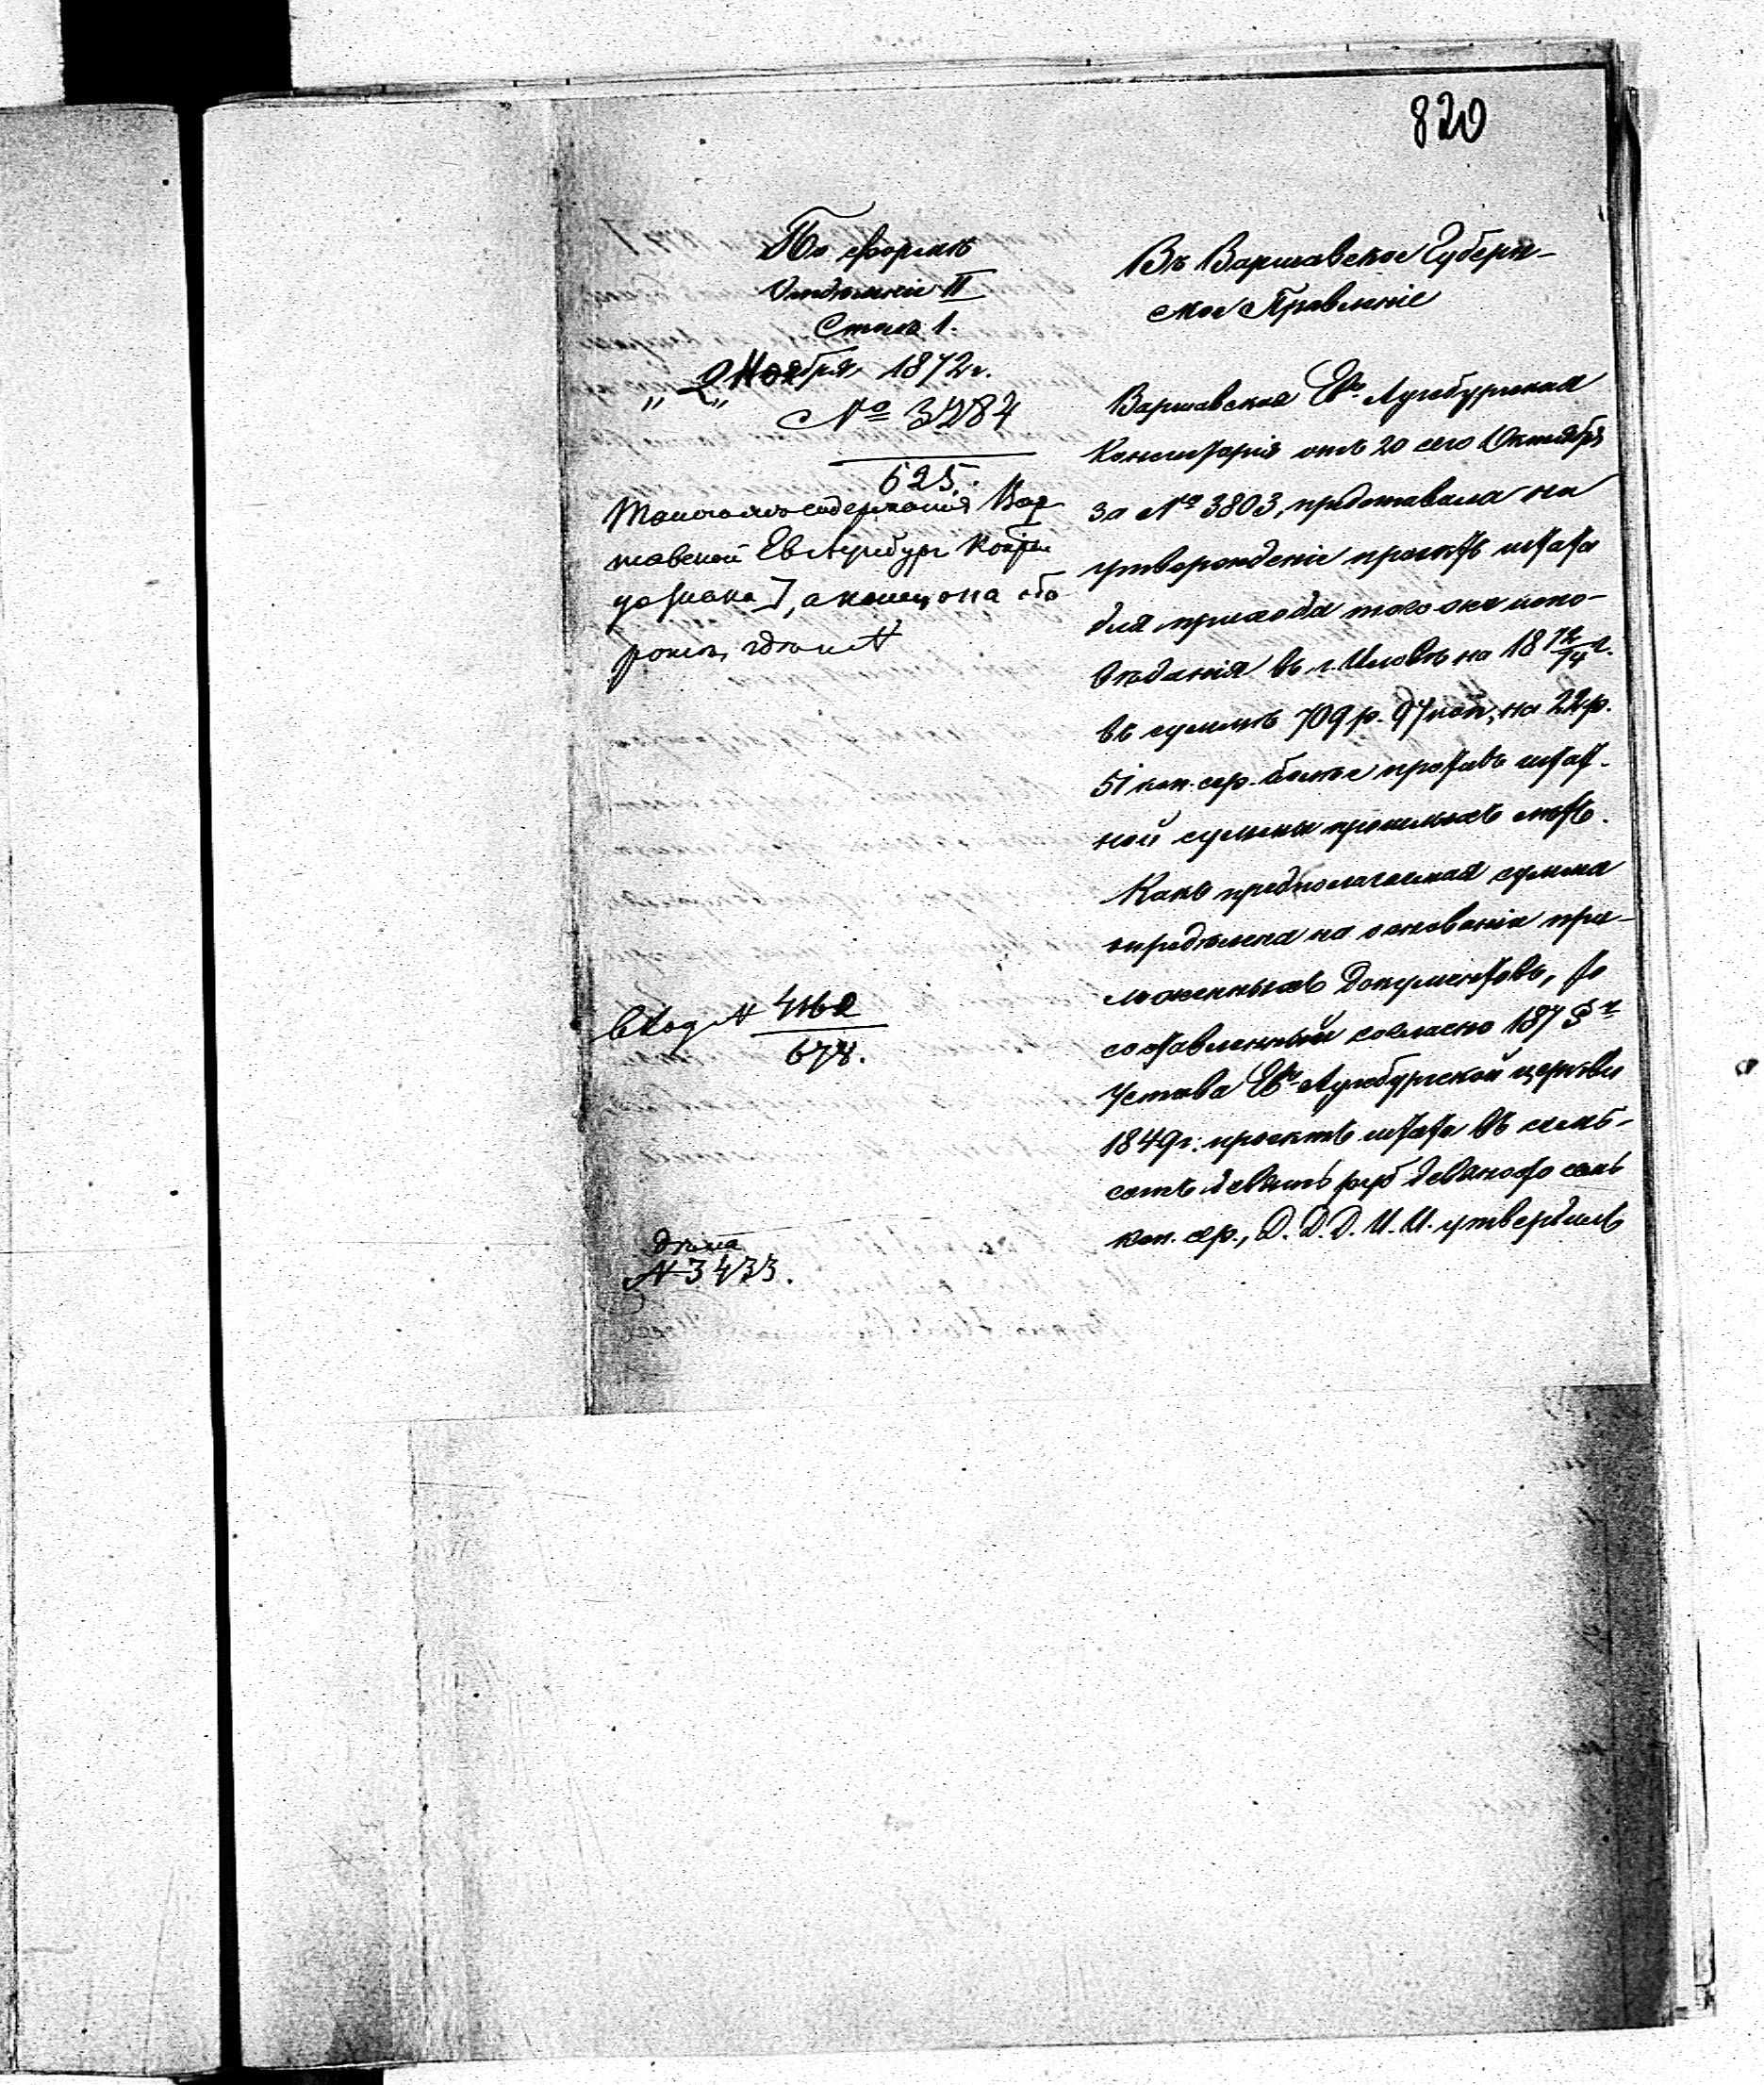 820
По формѣ
Отдѣленіе II
Столъ 1.
„2„ Ноября 1872 г.
№ 3284
625.
Такого же содержанія Вар
шавской Ев Аугсбург Конси
до знака ], а конецъ на обо
ротѣ,
Вход № 4462
678.
Дѣла
№ 3433.
Въ Варшавское Губерн-
ское Правленіе
Варшавская Ев. Аугсбургская
Консисторія отъ 20 сего Октября
за № 3803, представила на
утвержденіе проектъ штата
для прихода того же испо-
вѣданія въ г. Иловѣ на 18 72/74 г.
въ суммѣ 709 р. 97 коп., на 22 р.
51 коп. сер. болѣе противъ штат-
ной суммы прошлыхъ лѣтъ.
Какъ предполагаемая сумма
опредѣлена на основаніи при-
ложенныхъ документовъ, то
составленный согласно 187 §
Устава Ев. Аугсбургской церкви
1849 г. проектъ штата въ семь-
сотъ девять руб девяносто семь
коп. сер., Д. Д. Д. И. И. утвердилъ